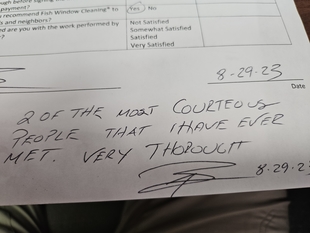 ough before signing
payment?
u recommend Fish Window Cleaning® to Yes No
s and neighbors?
ed are you with the work performed by Not Satisfied
? Somewhat Satisfied
Satisfied
Very Satisfied
8-29-23
Date
2 OF THE MOST COURTEOUS
PEOPLE THAT I HAVE EVER
MET. VERY THOROUGH
8-29-23